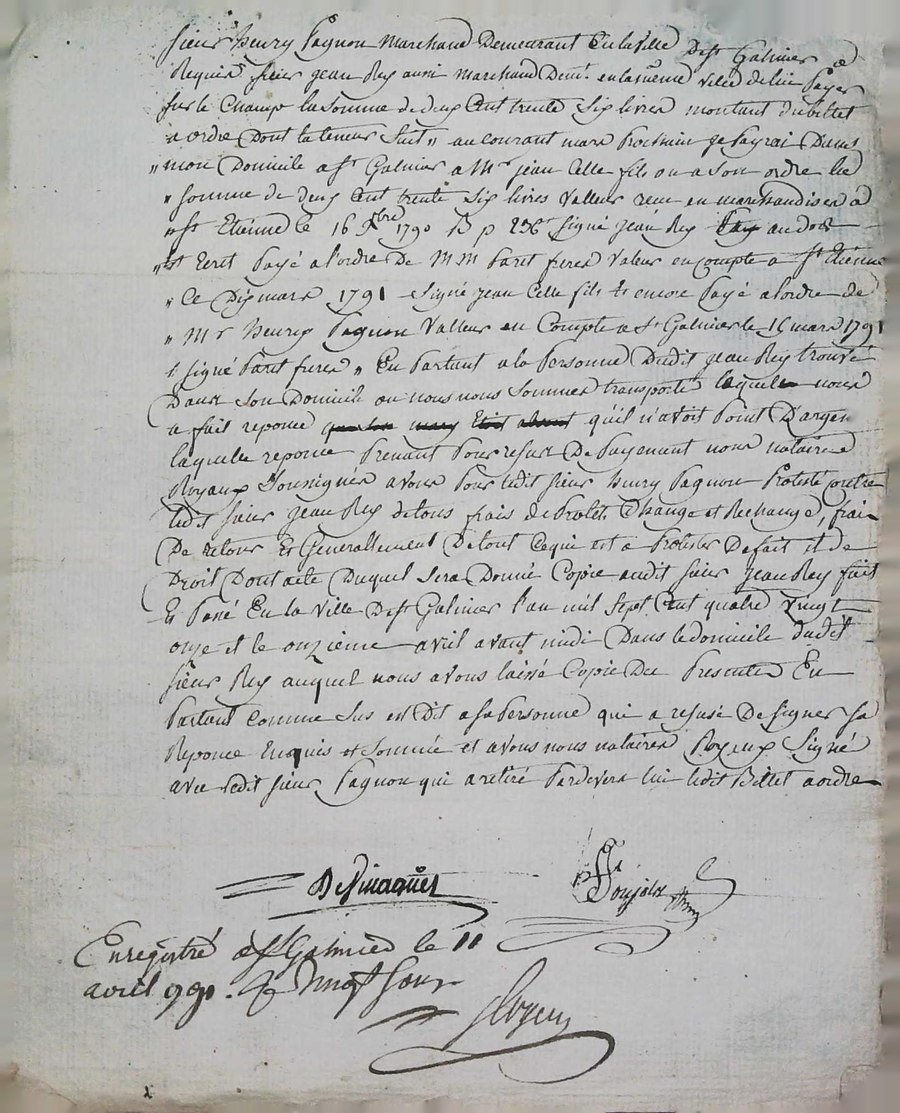 sieur henry Pagnon Marchand Demeurant En la ville De st Galmier a
Requis sieur jean Rey aussi marchand Demt. en la meme ville de lui Payer
sur le Champ la somme de deux Cent trente six livres montant du billet
a ordre Dont la teneur suit " au courant mars Prochain je Payrai Dans
" mon Domicile a st Galmier a Mr jean Celle fils ou a son ordre la
" somme de deux Cent trente six livres Valleur recue en marchandises a
" st Etienne le 16 xbre 1790 B p 236 signé jean Rey au dos
" est Ecrit Payé a l'ordre De MM Parit freres Valeur en compte a st Etienne
" Ce Dix mars 1791 signé jean Celle fils & encore Payé a l'ordre de
" Mr henry Pagnon Valleur en Compte a st Galmier le 16 mars 1791
& signé Parit freres " En Parlant a la Personne Dudit jean Rey trouvé
Dans son Domicile ou nous nous sommes transporté laquelle nous
a fait reponce que son mary etoit absent qu'il n'avoit Point D'argen
laquelle reponce Prenant Pour refus De Payement nous notaires
Royaux soussignes avons Pour ledit sieur henry Pagnon Protesté contre
ledit sieur jean Rey de tous frais de Protets Change et Rechange, frais
De retour Et Generallement De tout ce qui est a Protester De fait et de
Droit Dont acte Duquel sera Donné Copie audit sieur jean Rey fait
Et Passé En la Ville De st Galmier l'an mil sept Cent quatre vingt
onze et le onzieme avril avant midi Dans le domicile dudit
sieur Rey auquel nous avons laissé Copie Des Presentes En
Parlant Comme sus est Dit a sa Personne qui a refusé De signer sa
Reponce Enquis et sommé et avons nous notaires Royaux signé
avec ledit sieur Pagnon qui a retiré Pardevers lui ledit Billet a ordre
Enregistré a st Galmier le 11
avril 1791. vingt sous